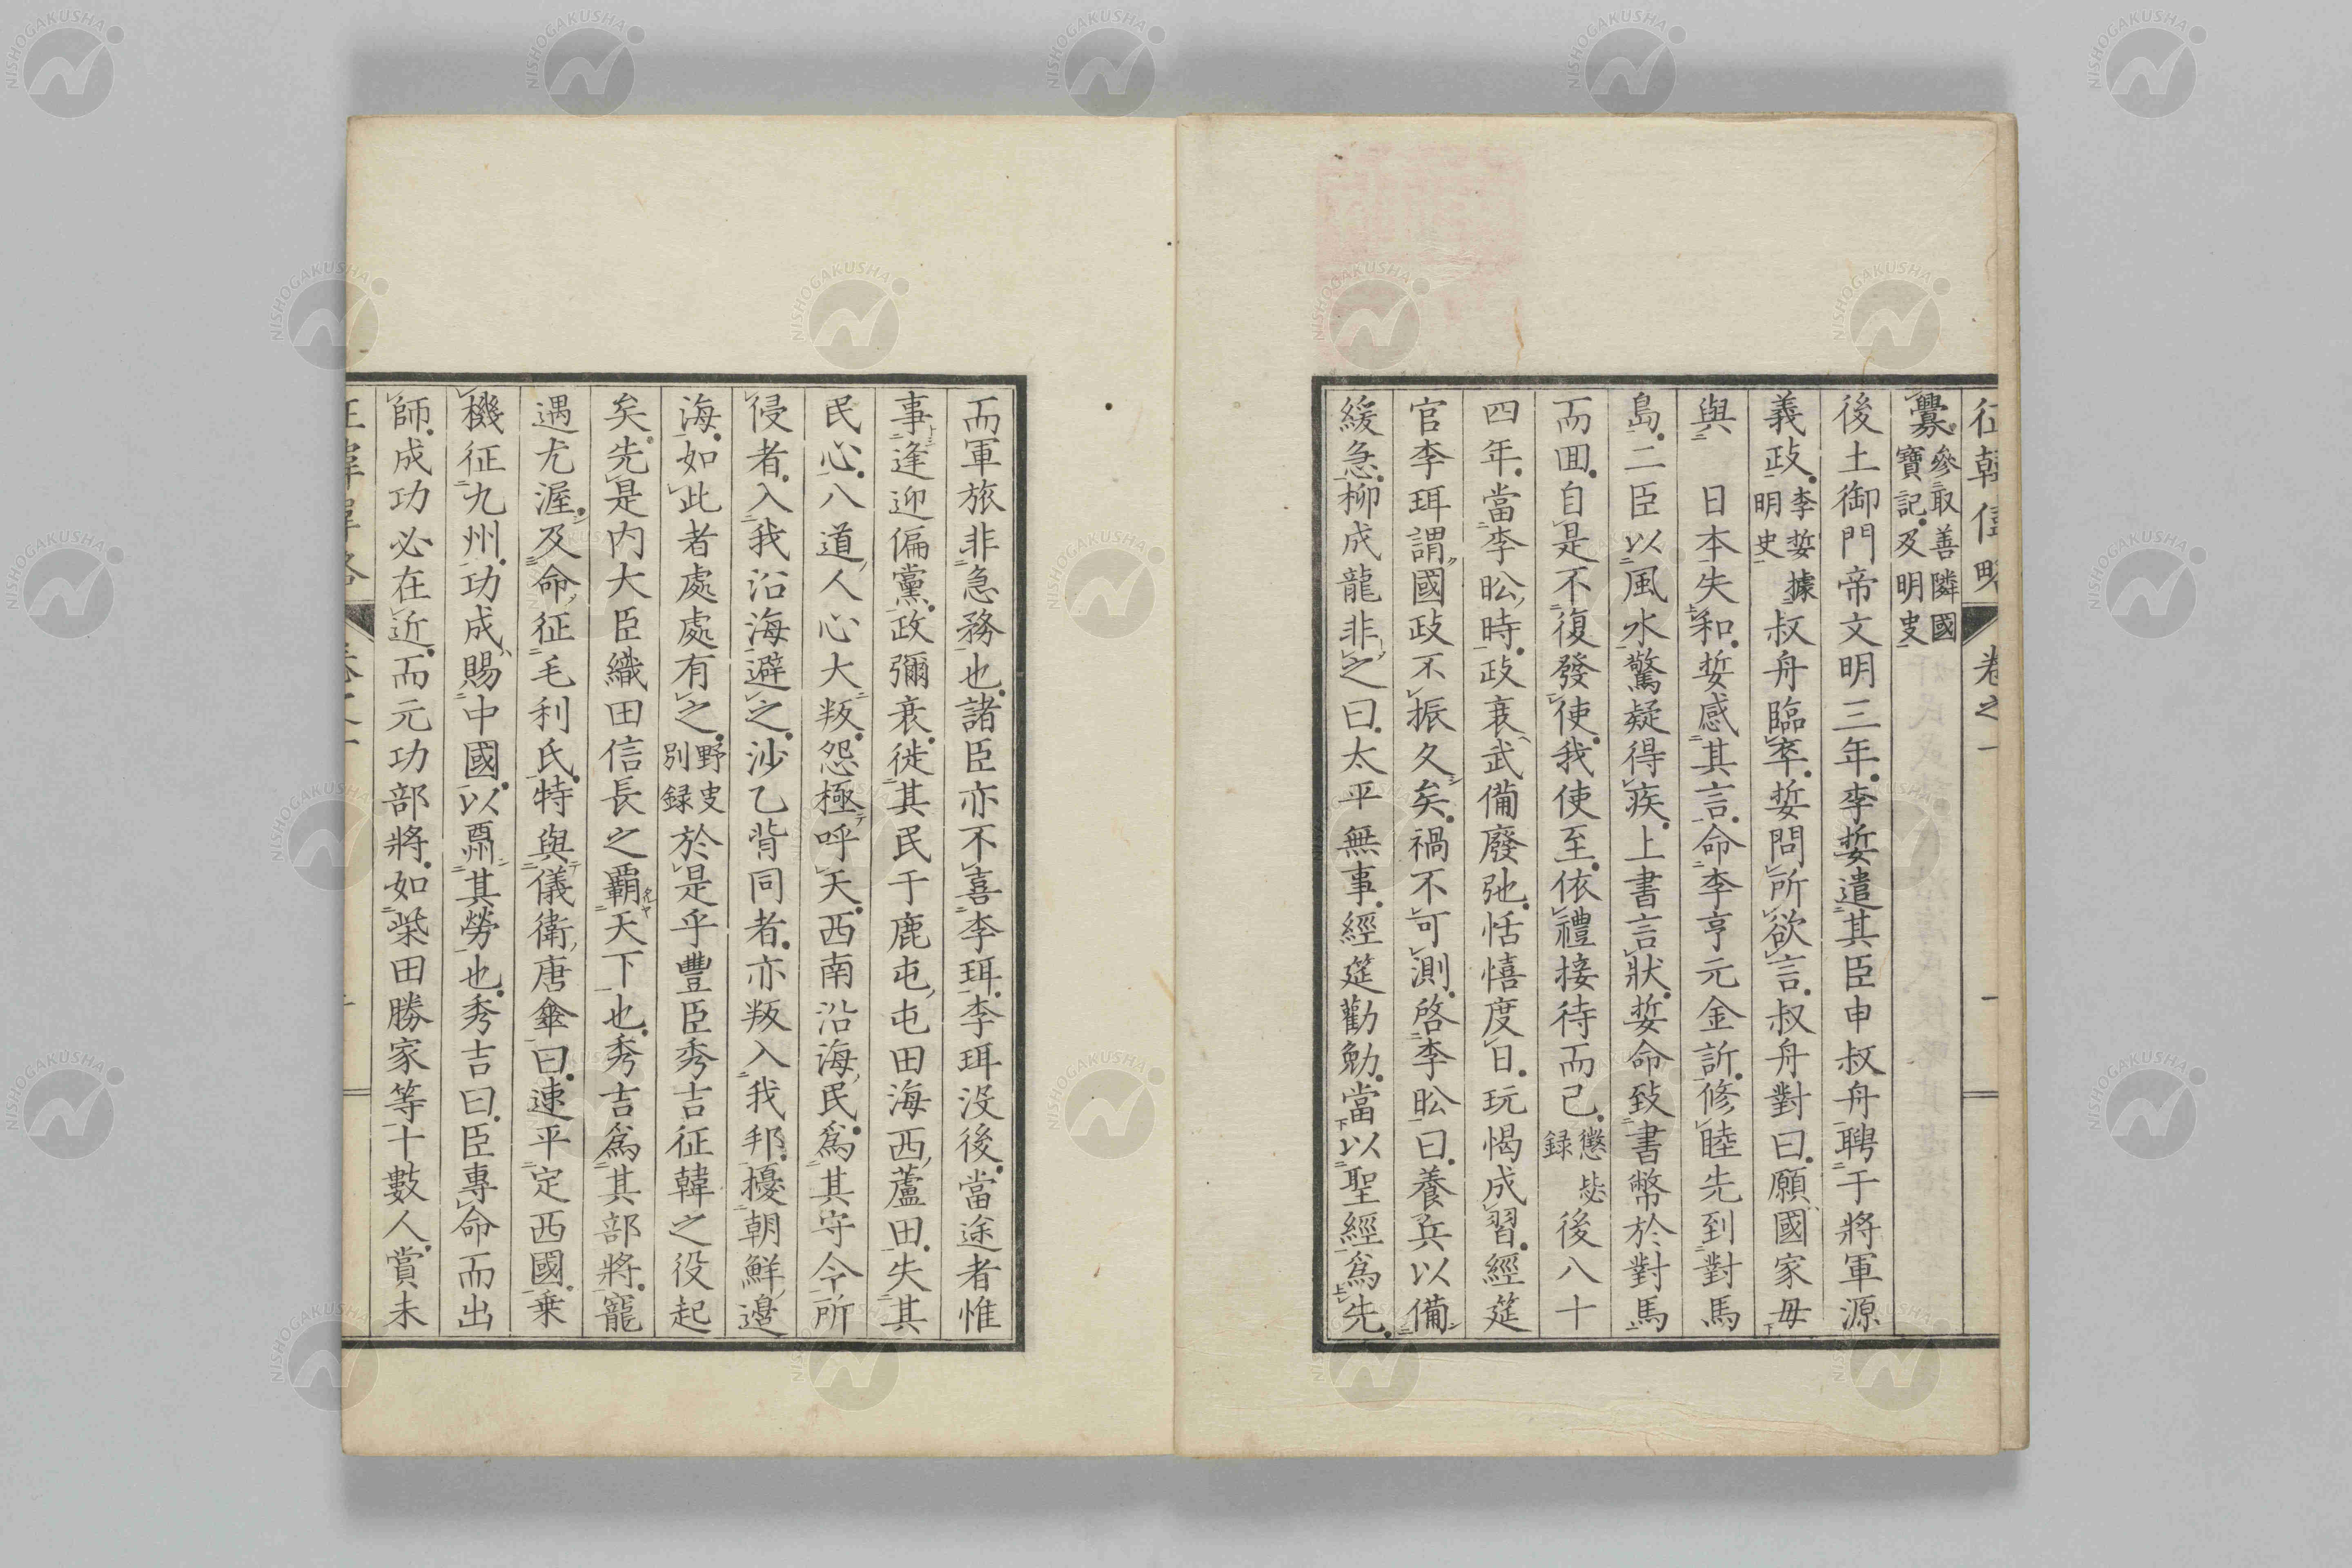 征韓偉略 卷之一 一
釁參取善隣國寶記及明史
後土御門帝文明三年李娎遣其臣申叔舟聘于將軍源
義政李娎據明史叔舟臨卒娎問所欲言叔舟對曰願國家毋
與 日本失和娎感其言命李亨元金訢修睦先到對馬
島二臣以風水驚疑得疾上書言狀娎命致書幣於對馬
而囬自是不復發使我使至依禮接待而已懲毖錄後八十
四年當李昖時政衰武備廢弛恬憘度日玩愒成習經筵
官李珥謂國政不振久矣禍不可測啓李昖曰養兵以備
緩急柳成龍非之曰太平無事經筵勸勉當以聖經爲先
而軍旅非急務也諸臣亦不喜李珥李珥沒後當途者惟
事逢迎偏黨政彌衰徙其民于鹿屯屯田海西蘆田失其
民心八道人心大叛怨極呼天西南沿海民爲其守令所
侵者入我沿海避之沙乙背同者亦叛入我邦擾朝鮮邊
海如此者處處有之野史別録於是乎豐臣秀吉征韓之役起
矣先是內大臣織田信長之覇天下也秀吉爲其部將寵
遇尤渥及命征毛利氏特與儀衛唐傘曰速平定西國乗
機征九州功成賜中國以酬其勞也秀吉曰臣專命而出
師成功必在近而元功部將如柴田勝家等十數人賞未
征韓偉略 卷之一
NISHOGAKUSHA